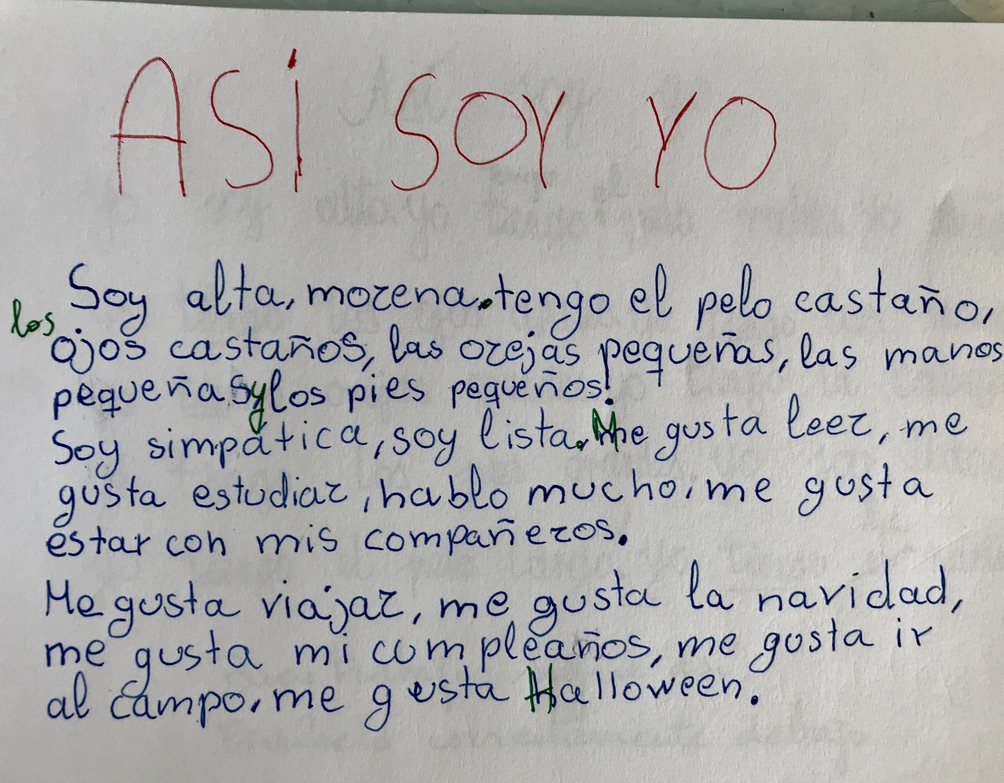 ASÍ SOY YO
Soy alta, morena. tengo el pelo castaño,
los ojos castaños, las orejas pequeñas, las manos
pequeñas y los pies pequeños.
Soy simpática, soy lista. Me gusta leer, me
gusta estudiar, hablo mucho, me gusta
estar con mis compañeros.
Me gusta viajar, me gusta la navidad,
me gusta mi cumpleaños, me gusta ir
al campo, me gusta Halloween.